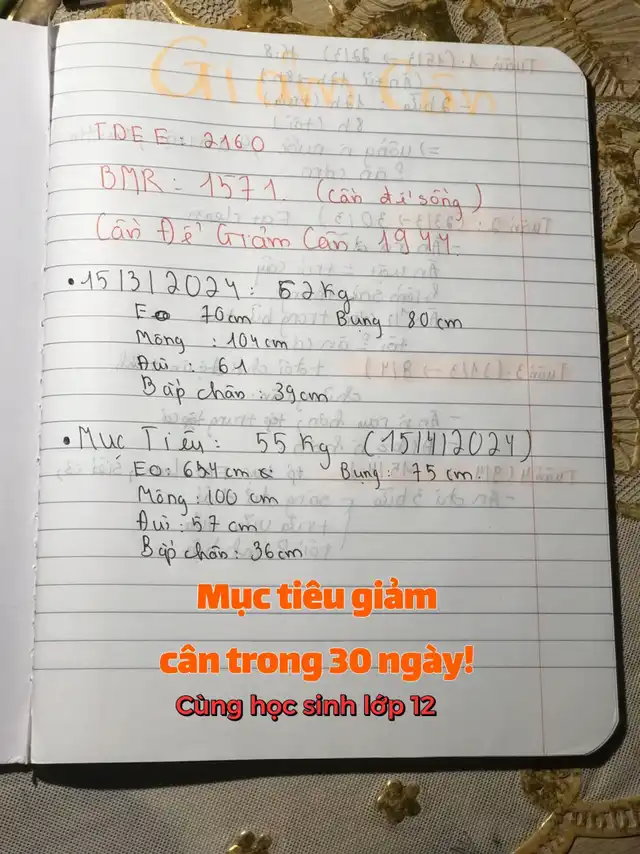 Giảm Cân
TDEE: 2160
BMR: 1571. (cần để sống)
Cần Để Giảm Cân 1944.
• 15/3/2024: 62kg
Eo 70cm Bụng: 80cm
Mông: 104cm
Đùi: 61
Bắp chân: 39cm
• Mục Tiêu: 55kg (15/4/2024)
Eo: cm Bụng: 75 cm.
Mông: 100 cm
Đùi: 57 cm
Bắp chân: 36cm
Mục tiêu giảm
cân trong 30 ngày!
Cùng học sinh lớp 12